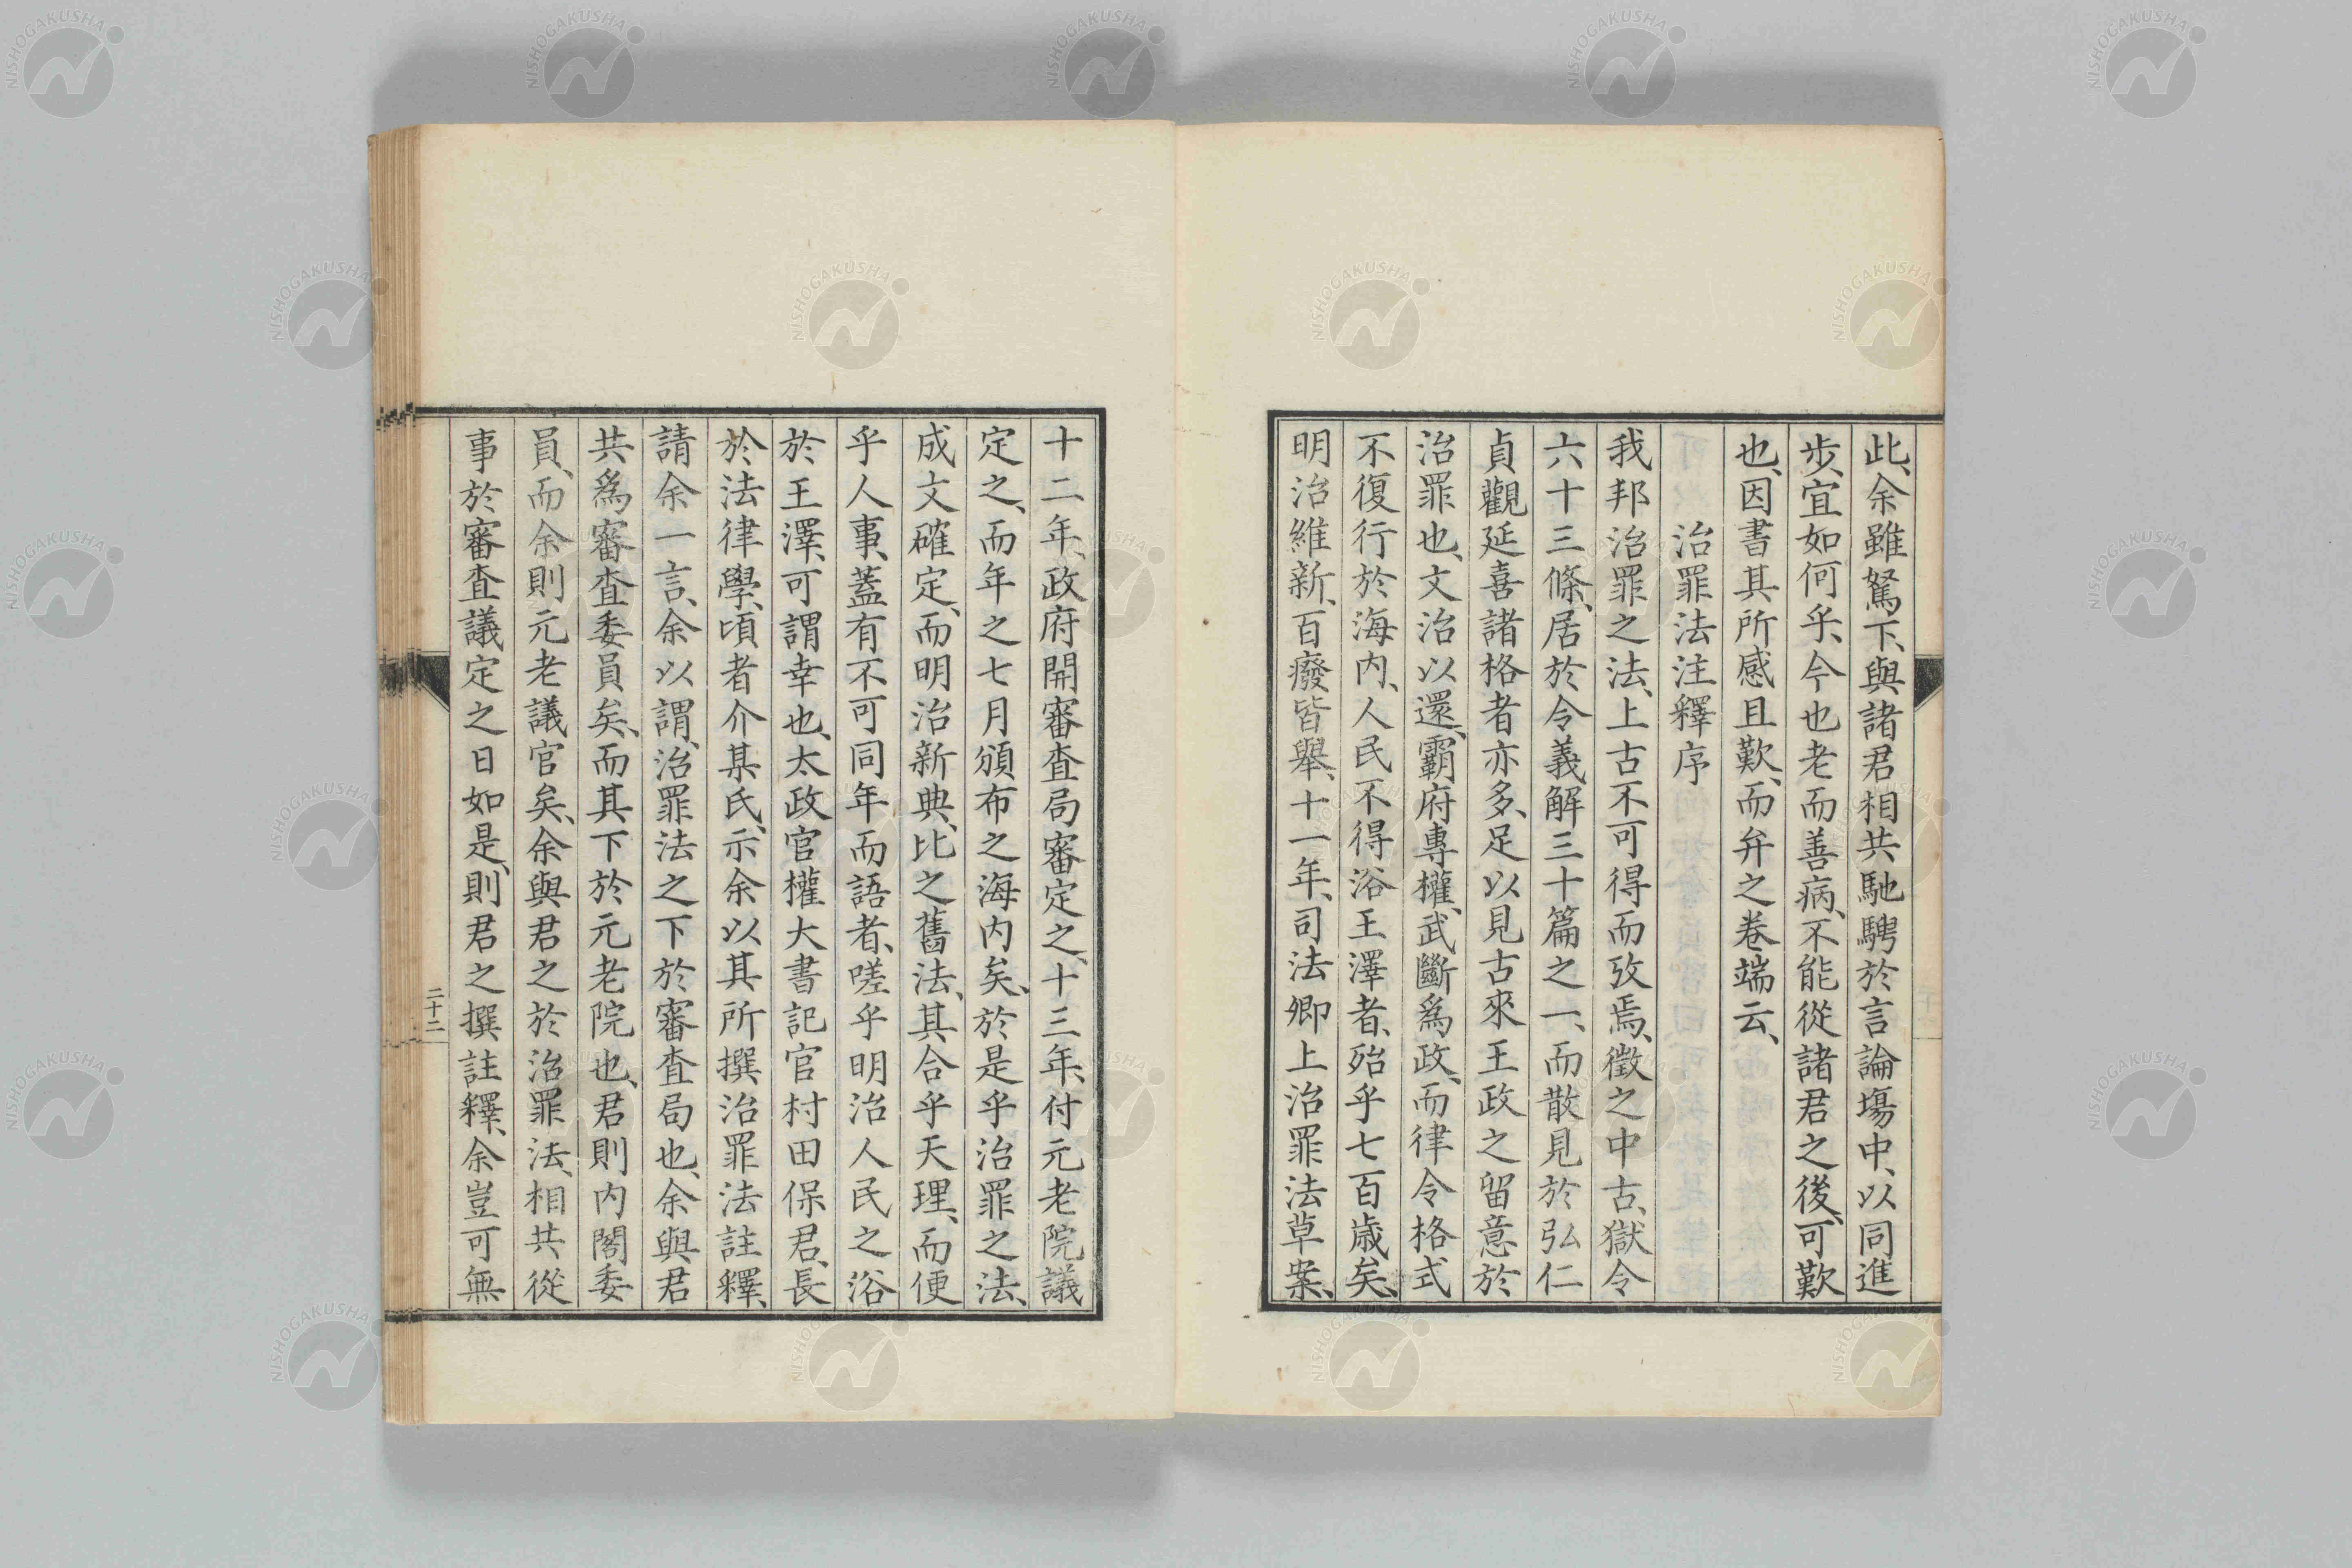 此、余雖駑下、與諸君相共馳騁於言論塲中、以同進
步、宜如何乎、今也老而善病、不能從諸君之後、可歎
也、因書其所感且歎、而弁之卷端云、
治罪法注釋序
我邦治罪之法、上古不可得而攷焉、徵之中古、獄令
六十三條、居於令義解三十篇之一、而散見於弘仁
貞觀延喜諸格者亦多、足以見古來王政之留意於
治罪也、文治以還、霸府專權、武斷爲政、而律令格式
不復行於海内、人民不得浴王澤者、殆乎七百歲矣、
明治維新、百癈皆舉、十一年、司法卿上治罪法草案、
十二年、政府開審査局審定之、十三年、付元老院議
定之、而年之七月頒布之海内矣、於是乎治罪之法、
成文確定、而明治新典、比之舊法、其合乎天理、而便
乎人事、蓋有不可同年而語者、嗟乎明治人民之浴
於王澤、可謂幸也、太政官權大書記官村田保君、長
於法律學、頃者介某氏、示余以其所撰治罪法註釋、
請余一言、余以謂、治罪法之下於審査局也、余與君
共爲審査委員矣、而其下於元老院也、君則内閣委
員、而余則元老議官矣、余與君之於治罪法、相共從
事於審査議定之日如是、則君之撰註釋、余豈可無
二十二
NISHOGAKUSHA